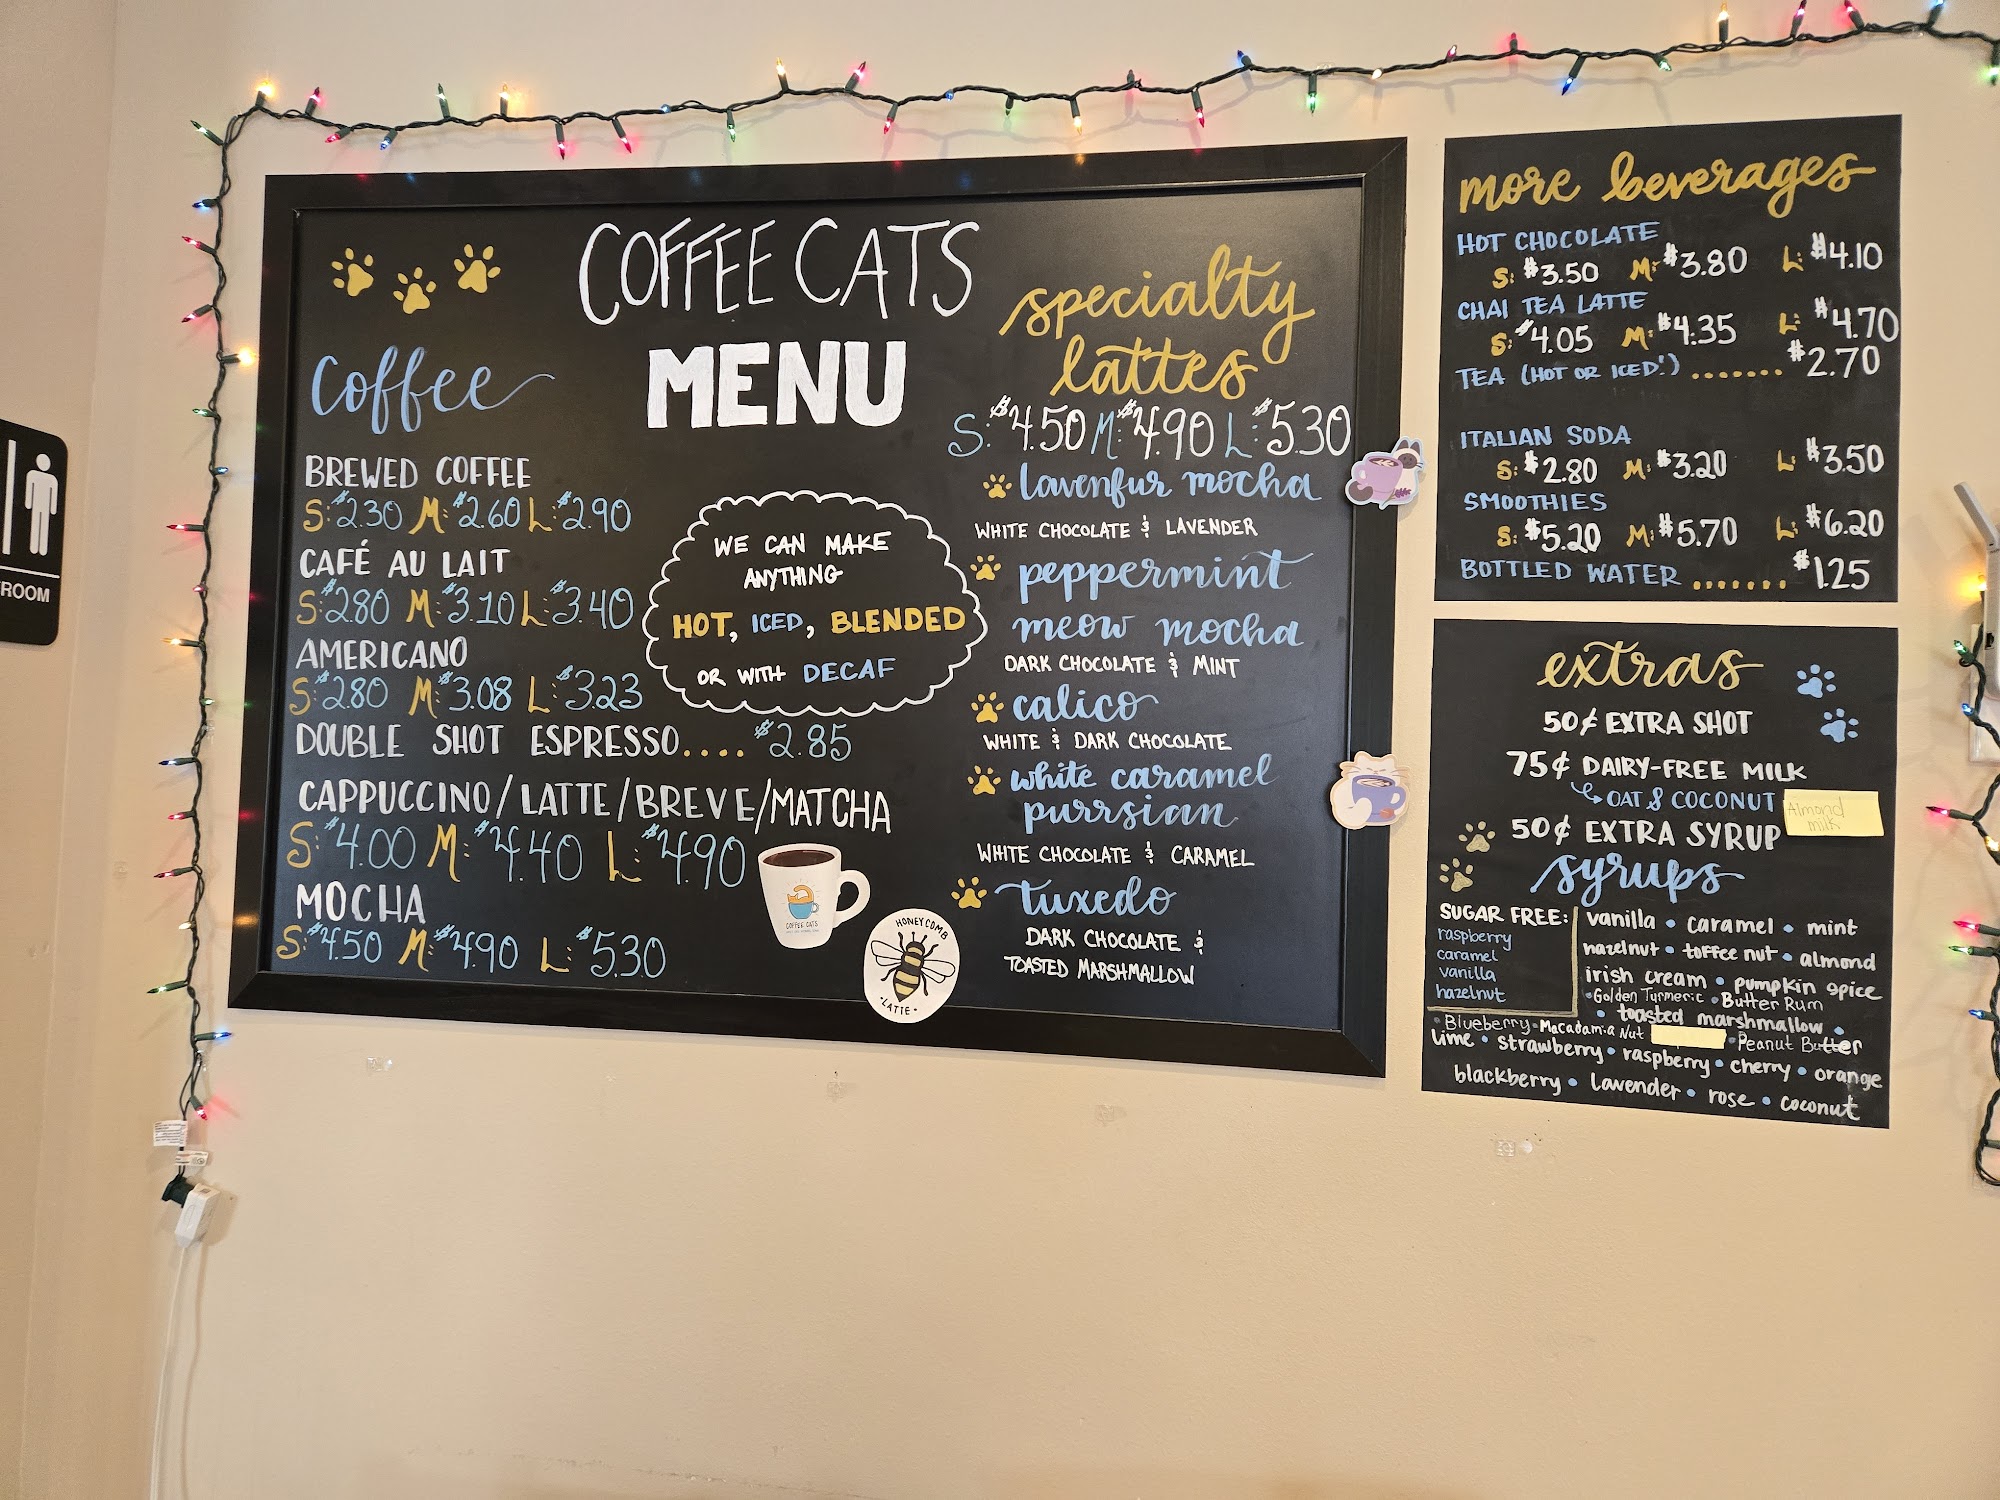 ROOM
COFFEE CATS
MENU
Coffee
BREWED COFFEE
S: $2.30 M: $2.60 L: $2.90
CAFÉ AU LAIT
S: $2.80 M: $3.10 L: $3.40
AMERICANO
S: $2.80 M: $3.08 L: $3.23
DOUBLE SHOT ESPRESSO.... $2.85
CAPPUCCINO/LATTE/BREVE/MATCHA
S: $4.00 M: $4.40 L: $4.90
MOCHA
S: $4.50 M: $4.90 L: $5.30
WE CAN MAKE
ANYTHING
HOT, ICED, BLENDED
OR WITH DECAF
COFFEE CATS
HONEYCOMB
•LATTE•
specialty
lattes
S: $4.50 M: $4.90 L: $5.30
lavenfur mocha
WHITE CHOCOLATE & LAVENDER
peppermint
meow mocha
DARK CHOCOLATE & MINT
calico
WHITE & DARK CHOCOLATE
white caramel
purrsian
WHITE CHOCOLATE & CARAMEL
tuxedo
DARK CHOCOLATE &
TOASTED MARSHMALLOW
more beverages
HOT CHOCOLATE
S: $3.50 M: $3.80 L: $4.10
CHAI TEA LATTE
S: $4.05 M: $4.35 L: $4.70
TEA (HOT OR ICED!) ....... $2.70
ITALIAN SODA
S: $2.80 M: $3.20 L: $3.50
SMOOTHIES
S: $5.20 M: $5.70 L: $6.20
BOTTLED WATER ....... $1.25
extras
50¢ EXTRA SHOT
75¢ DAIRY-FREE MILK
OAT & COCONUT
Almond
milk
50¢ EXTRA SYRUP
syrups
SUGAR FREE:
raspberry
caramel
vanilla
hazelnut
vanilla • caramel • mint
hazelnut • toffee nut • almond
irish cream • pumpkin spice
•Golden Turmeric •Butter Rum
• toasted marshmallow •
•Blueberry •Macadamia Nut •Peanut Butter
lime • strawberry • raspberry • cherry • orange
blackberry • lavender • rose • coconut